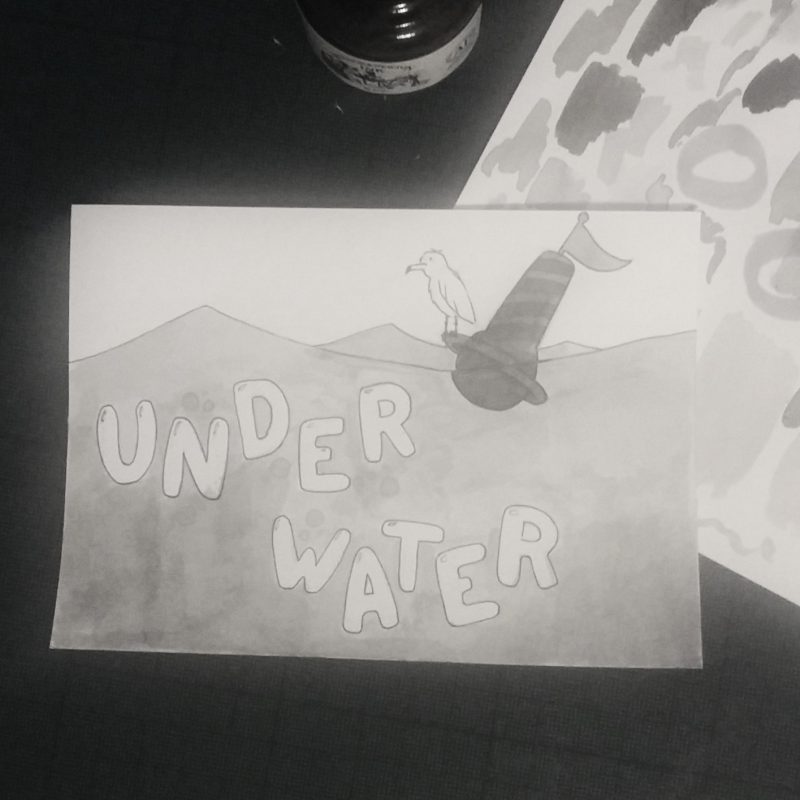 UNDER
WATER